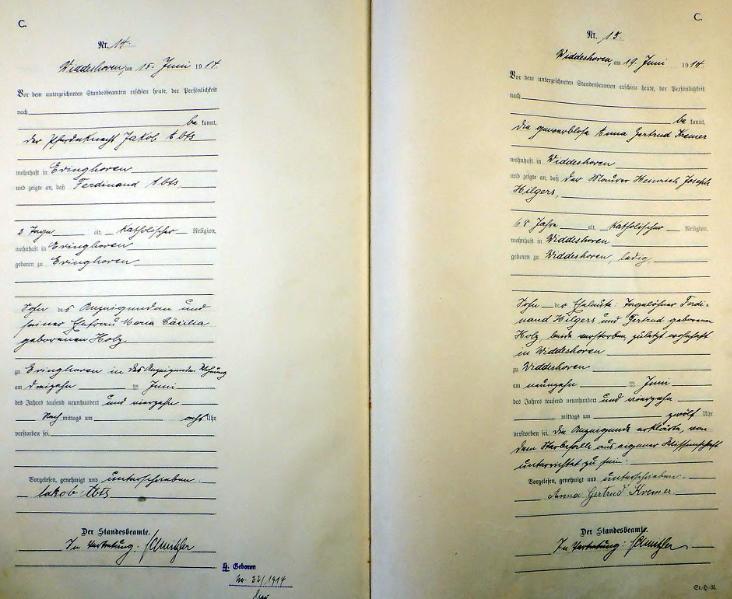 C.
Nr. 14.
Widdeshoven, am 15. Juni 1914.
Vor dem unterzeichneten Standesbeamten erschien heute, der Persönlichkeit
nach
be kannt,
der Pferdeknecht Jakob Abts
wohnhaft in Evinghoven
und zeigte an, daß Ferdinand Abts
2 Tage alt, katholischer Religion,
wohnhaft in Evinghoven
geboren zu Evinghoven
Sohn des Anzeigenden und
seiner Ehefrau Maria Cäcilia
geborenen Holz
zu Evinghoven in des Anzeigenden Wohnung
am dreizehn ten Juni
des Jahres tausend neunhundert und vierzehn
Nach mittags um acht Uhr
verstorben sei.
Vorgelesen, genehmigt und unterschrieben
Jakob Abts
Der Standesbeamte.
In Vertretung:
Geboren
Nr. 32/1914
C.
Nr. 15.
Widdeshoven, am 19. Juni 1914.
Vor dem unterzeichneten Standesbeamten erschien heute, der Persönlichkeit
nach
be kannt,
die gewerblose Anna Gertrud Kremer
wohnhaft in Widdeshoven
und zeigte an, daß der Maurer Heinrich Joseph
Hilgers,
68 Jahre alt, katholischer Religion,
wohnhaft in Widdeshoven
geboren zu Widdeshoven, ledig,
Sohn der Eheleute: Tagelöhner Ferdi-
nand Hilgers und Gertrud geborenen
Holz beide verstorben, zuletzt wohnhaft
in Widdeshoven
zu Widdeshoven
am neunzehn ten Juni
des Jahres tausend neunhundert und vierzehn
mittags um zwölf Uhr
verstorben sei. Die Anzeigende erklärte, von
dem Sterbefalle aus eigener Wissenschaft
unterrichtet zu sein.
Vorgelesen, genehmigt und unterschrieben
Anna Gertrud Kremer
Der Standesbeamte.
In Vertretung: